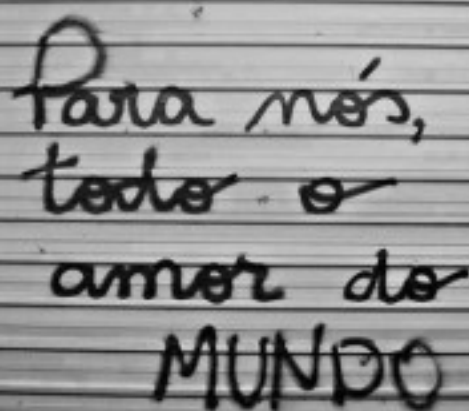 Para nós,
todo o
amor do
MUNDO